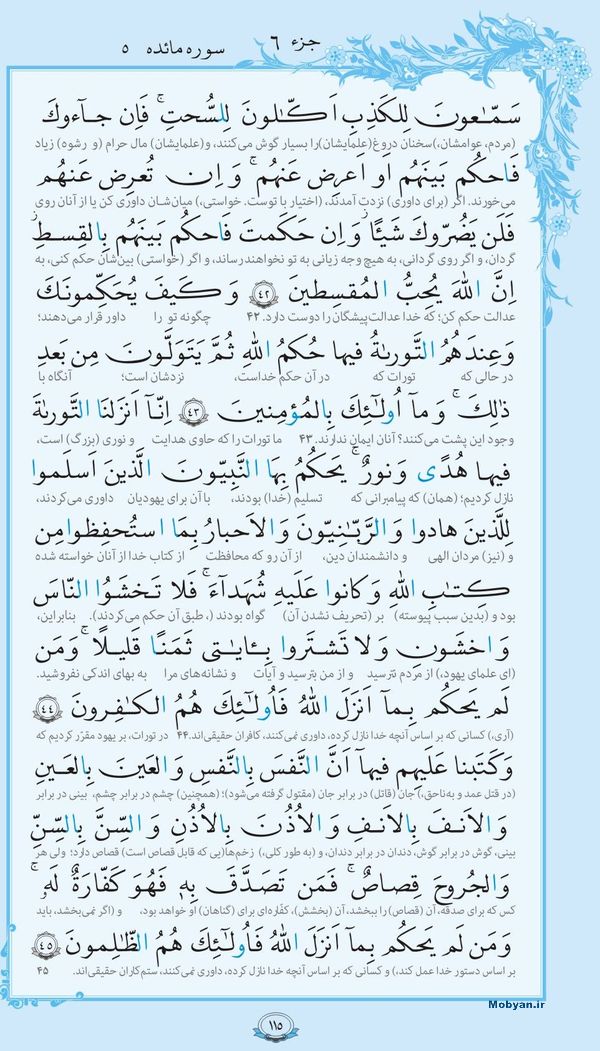 جزء ۶
سوره مائده ۵
سَمّٰعونَ لِلكَذِبِ اَكّٰلونَ لِلسُّحتِ ۚ فَاِن جآءوكَ
(مردم، عوامشان،) سخنان دروغ (علمایشان) را بسیار گوش می‌کنند، و (علمایشان) مال حرام (و رشوه) زیاد
فَاحكُم بَينَهُم اَو اَعرِض عَنهُم ۚ وَ اِن تُعرِض عَنهُم
می‌خورند. اگر (برای داوری) نزدت آمدند، (اختیار با توست. خواستی،) میان‌شان داوری کن یا از آنان روی
فَلَن يَضُرّوكَ شَيـًٔا ۖ وَ اِن حَكَمتَ فَاحكُم بَينَهُم بِالقِسطِ ۚ
گردان، و اگر روی گردانی، به هیچ وجه زیانی به تو نخواهند رساند، و اگر (خواستی) بین‌شان حکم کنی، به
اِنَّ اللهَ يُحِبُّ المُقسِطينَ ﴿۴۲﴾ وَ كَيفَ يُحَكِّمونَكَ
عدالت حکم کن؛ که خدا عدالت‌پیشگان را دوست دارد. ۴۲ چگونه تو را داور قرار می‌دهند؛
وَ عِندَهُمُ التَّورىٰةُ فيها حُكمُ اللهِ ثُمَّ يَتَوَلَّونَ مِن بَعدِ
در حالی که تورات که در آن حکم خداست، نزدشان است؛ آنگاه با
ذٰلِكَ ۚ وَ مآ اُولٰٓئِكَ بِالمُؤمِنينَ ﴿۴۳﴾ اِنّآ اَنزَلنَا التَّورىٰةَ
وجود این پشت می‌کنند؟ آنان ایمان ندارند. ۴۳ ما تورات را که حاوی هدایت و نوری (بزرگ) است،
فيها هُدًى وَ نورٌ ۚ يَحكُمُ بِهَا النَّبيّونَ الَّذينَ اَسلَموا
نازل کردیم؛ (همان) که پیامبرانی که تسلیم (خدا) بودند، با آن برای یهودیان داوری می‌کردند،
لِلَّذينَ هادوا وَ الرَّبّٰنِيّونَ وَ الاَحبارُ بِمَا استُحفِظوا مِن
و (نیز) مردان الهی و دانشمندان دین، از آن رو که محافظت از کتاب خدا از آنان خواسته شده
كِتٰبِ اللهِ وَ كانوا عَلَيهِ شُهَدآءَ ۚ فَلا تَخشَوُا النّاسَ
بود و (بدین سبب پیوسته) بر (تحریف نشدن آن) گواه بودند (، طبق آن حکم می‌کردند). بنابراین،
وَ اخشَونِ وَ لا تَشتَروا بِـٔايٰتى ثَمَنًا قَليلًا ۚ وَ مَن
(ای علمای یهود،) از مردم نترسید و از من بترسید و آیات و نشانه‌های مرا به بهای اندکی نفروشید.
لَم يَحكُم بِمآ اَنزَلَ اللهُ فَاُولٰٓئِكَ هُمُ الكٰفِرونَ ﴿۴۴﴾
(آری،) کسانی که بر اساس آنچه خدا نازل کرده، داوری نمی‌کنند، کافران حقیقی‌اند. ۴۴ در تورات، بر یهود مقرّر کردیم که
وَ كَتَبنا عَلَيهِم فيهآ اَنَّ النَّفسَ بِالنَّفسِ وَ العَينَ بِالعَينِ
(در قتل عمد و به‌ناحق،) جان (قاتل) در برابر جان (مقتول گرفته می‌شود)؛ (همچنین) چشم در برابر چشم، بینی در برابر
وَ الاَنفَ بِالاَنفِ وَ الاُذُنَ بِالاُذُنِ وَ السِّنَّ بِالسِّنِّ
بینی، گوش در برابر گوش، دندان در برابر دندان، و (به طور کلی،) زخم‌ها(یی که قابل قصاص است) قصاص دارد؛ ولی هر
وَ الجُروحَ قِصاصٌ ۚ فَمَن تَصَدَّقَ بِه۪ فَهُوَ كَفّارَةٌ لَهٗ ۚ
کس که برای صدقه، آن (قصاص) را ببخشد، آن (بخشش)، کفّاره‌ای برای (گناهان) او خواهد بود. و (اگر نمی‌بخشد، باید
وَ مَن لَم يَحكُم بِمآ اَنزَلَ اللهُ فَاُولٰٓئِكَ هُمُ الظّٰلِمونَ ﴿۴۵﴾
بر اساس دستور خدا عمل کند،) و کسانی که بر اساس آنچه خدا نازل کرده، داوری نمی‌کنند، ستم‌کاران حقیقی‌اند. ۴۵
۱۱۵
Mobyan.ir